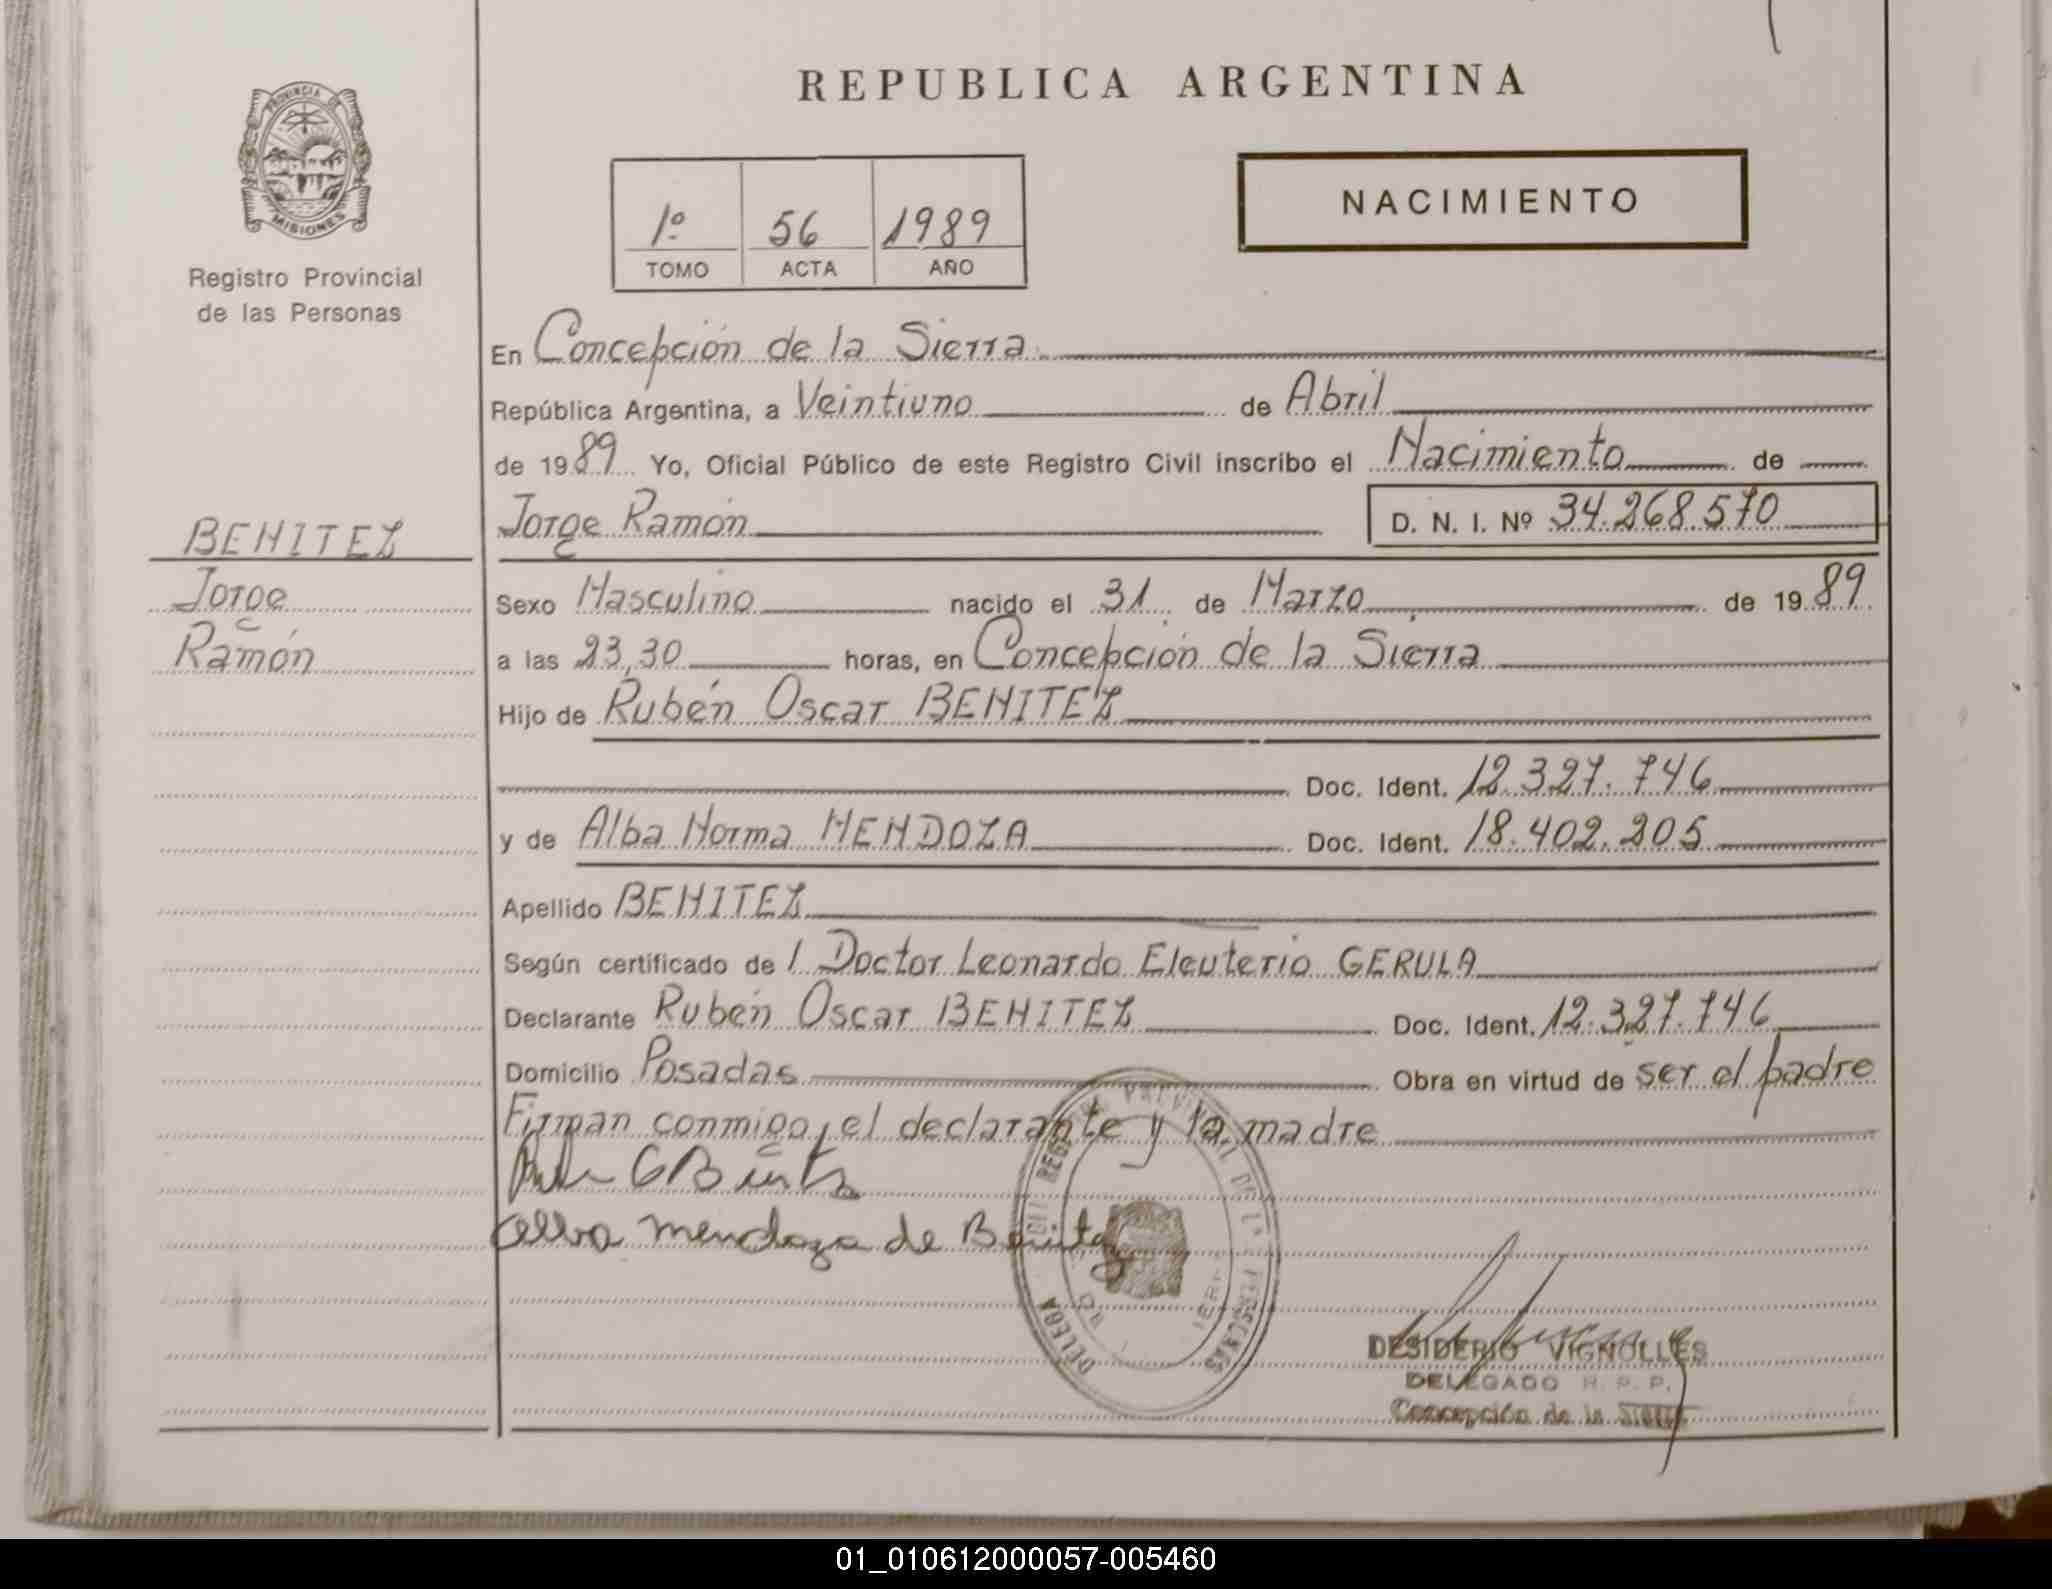 REPUBLICA ARGENTINA
PROVINCIA DE
MISIONES
Registro Provincial
de las Personas
1º 56 1989
TOMO ACTA AÑO
NACIMIENTO
En Concepción de la Sierra
República Argentina, a Veintiuno de Abril
de 1989 Yo, Oficial Público de este Registro Civil inscribo el Nacimiento de
Jorge Ramón D. N. I. Nº 34.268.570
BENITEZ
Jorge
Ramón
Sexo Masculino nacido el 31 de Marzo de 1989
a las 23,30 horas, en Concepción de la Sierra
Hijo de Rubén Oscar BENITEZ
Doc. Ident. 12.327.746
y de Alba Norma MENDOZA Doc. Ident. 18.402.205
Apellido BENITEZ
Según certificado de l Doctor Leonardo Eleuterio GERULA
Declarante Rubén Oscar BENITEZ Doc. Ident. 12.327.746
Domicilio Posadas Obra en virtud de ser el padre
Firman conmigo, el declarante y la madre
Alba Mendoza de Benitez
DESIDERIO VIGNOLLES
DELEGADO R. P. P.
Concepción de la Sierra
01_010612000057-005460